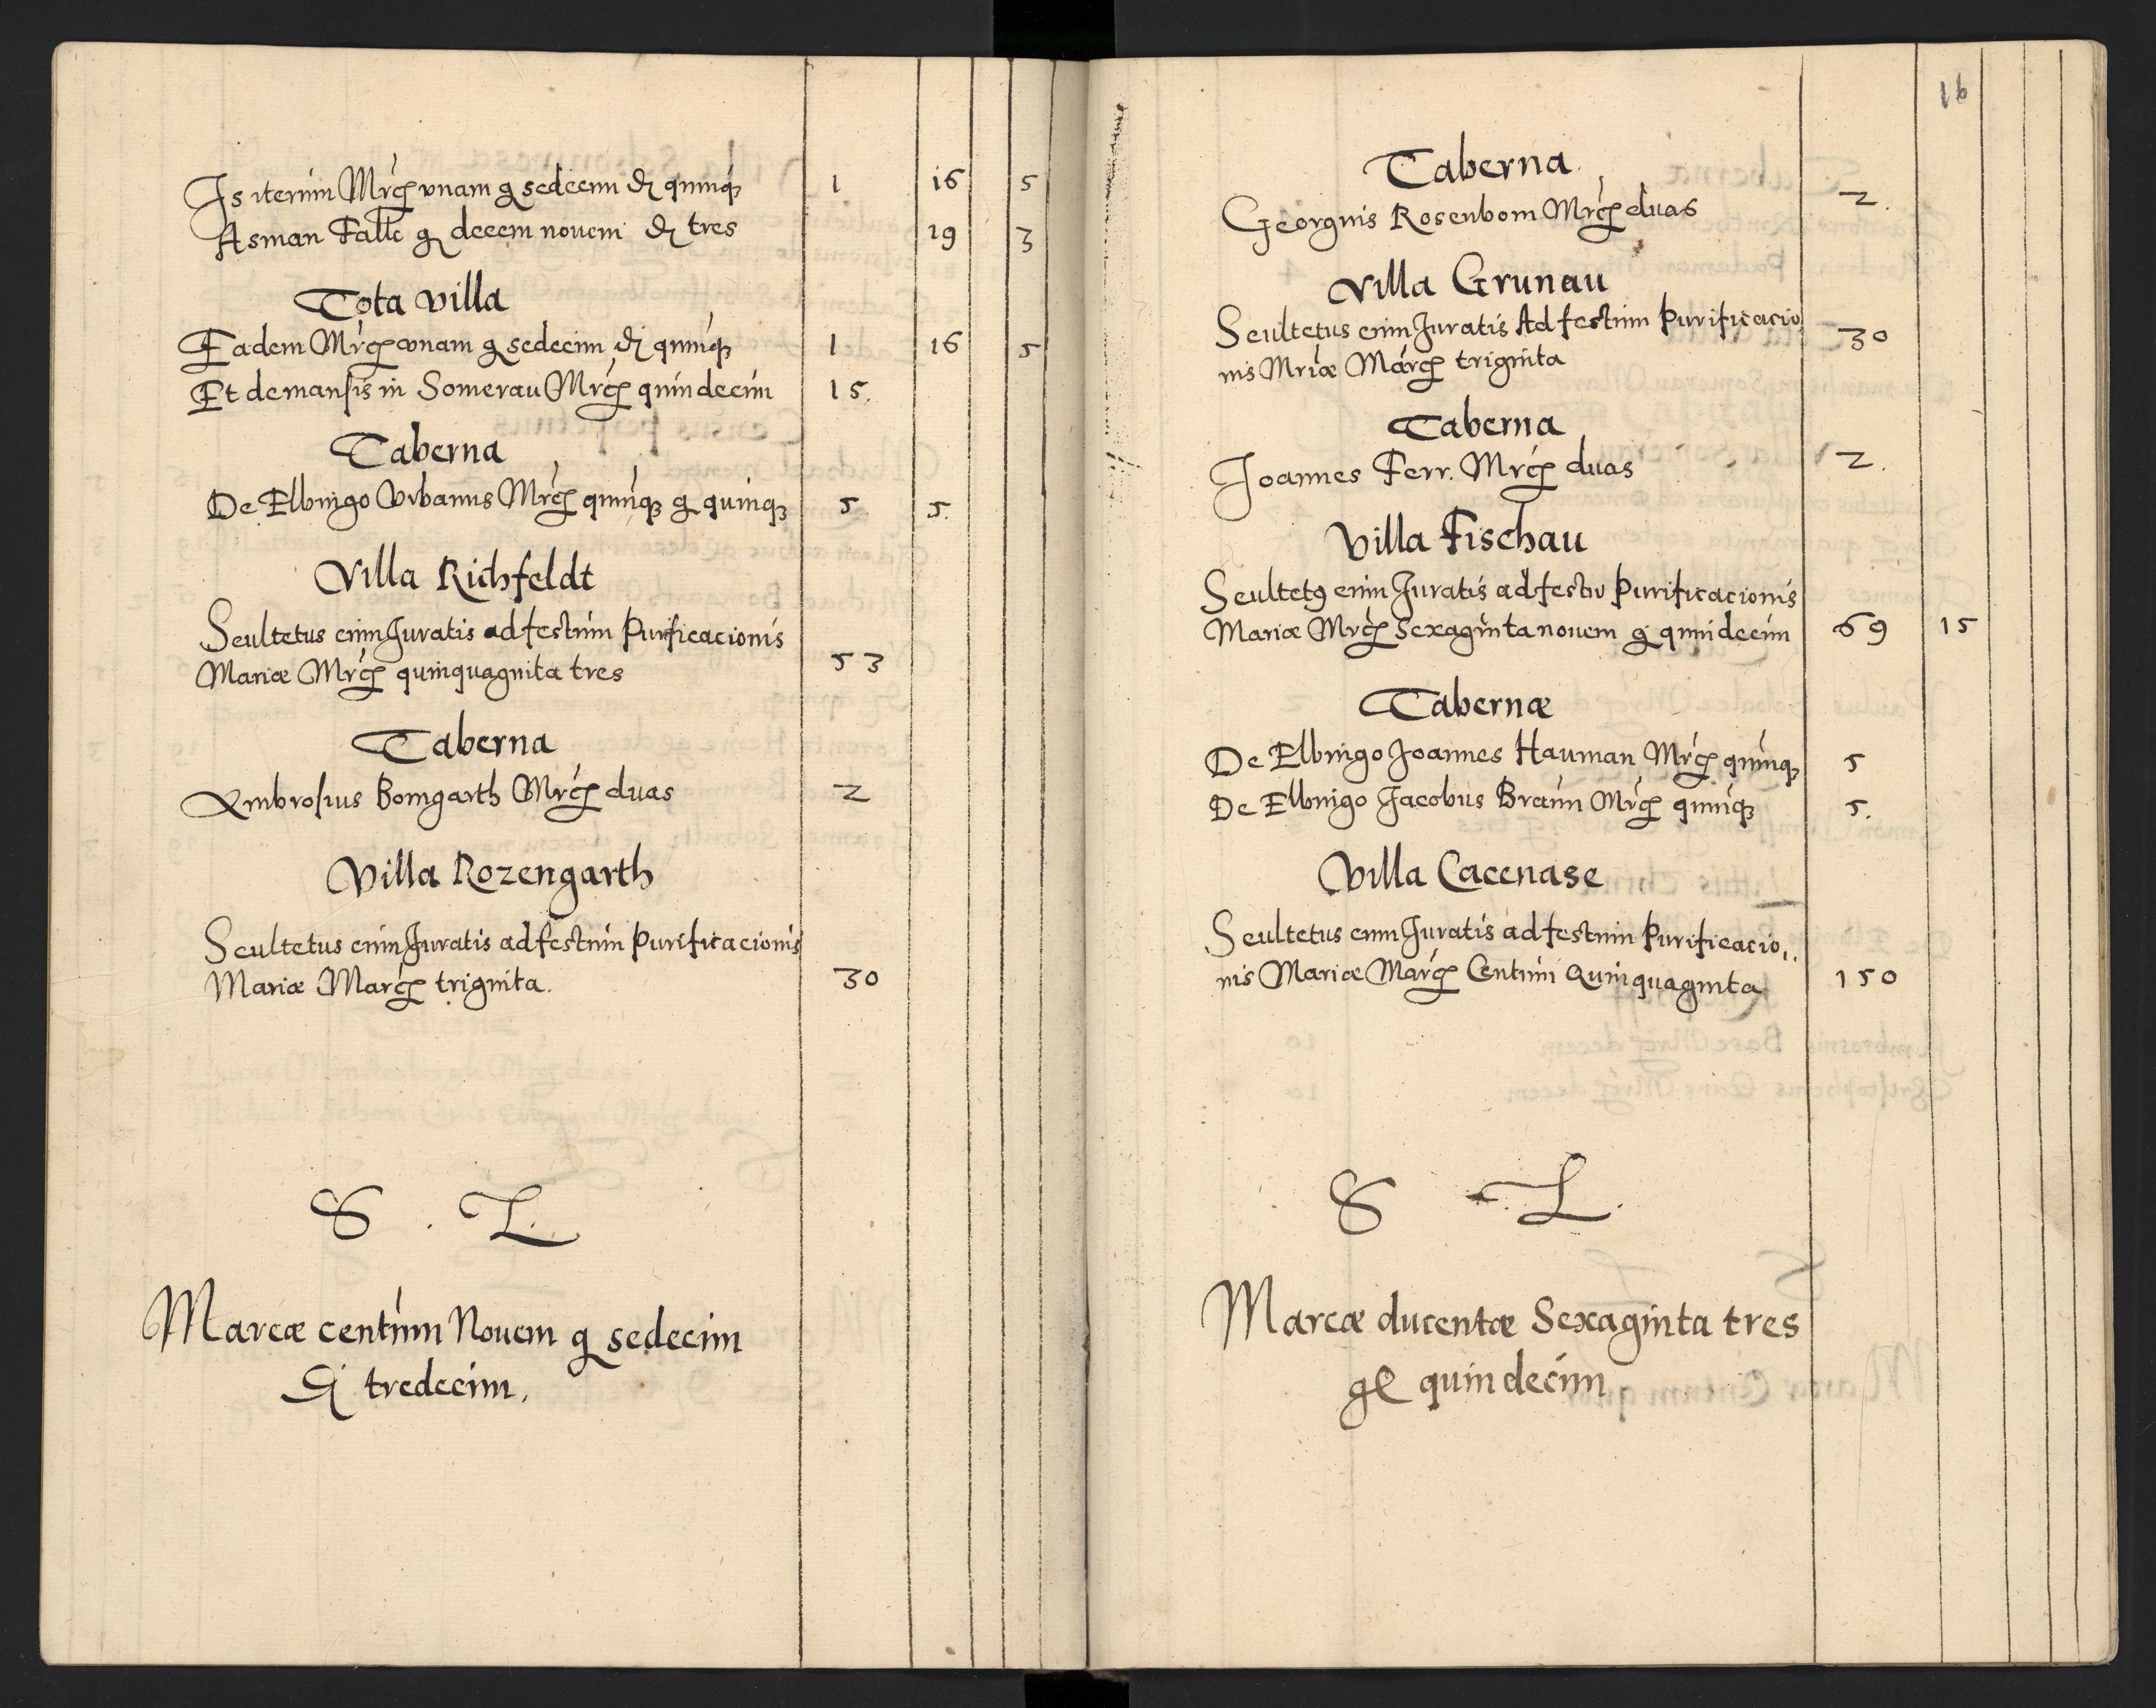 Is iterum Mrcę vnam g sedecim đ quinq3 1 16 5
Asman Falk g decem novem đ tres 19 3
Tota villa
Eadem Mrcę vnam g sedecim đ quinq3 1 16 5
Et de mansis in Somerau Mrcę quindecim 15.
Taberna
De Elbingo Vrbanus Mrcę quinq3 g quinq3 5 5.
Villa Richfeldt
Scultetus cum Juratis ad festum Purificacionis
Mariæ Mrcę quinquaginta tres 53
Taberna
Ambrosius Bomgarth Mrcę duas 2
Villa Rozengarth
Scultetus cum Juratis ad festum Purificacionis
Mariæ Marcę triginta. 30
S. L.
Marcæ centum Nouem g sedecim
đ tredecim.
16
Taberna
Georgius Rosenbom Mrcę duas 2.
Villa Grunau
Scultetus cum Juratis Ad festum Purificacio
nis Mriæ Marcę triginta 30
Taberna
Joannes Ferr. Mrcę duas 2.
Villa Fischau
Scultet9 cum Juratis ad festu Purificacionis
Mariæ Mrcę Sexaginta nouem g quindecim 69 15
Tabernæ
De Elbingo Joannes Hauman Mrcę quinq3 5
De Elbingo Jacobus Braun Mrcę quinq3 5.
Villa Cacenase
Scultetus cum Juratis ad festum Purificacio,,
nis Mariæ Marcę Centum Quinquaginta 150
S L.
Marcæ ducentæ Sexaginta tres
gl quindecim